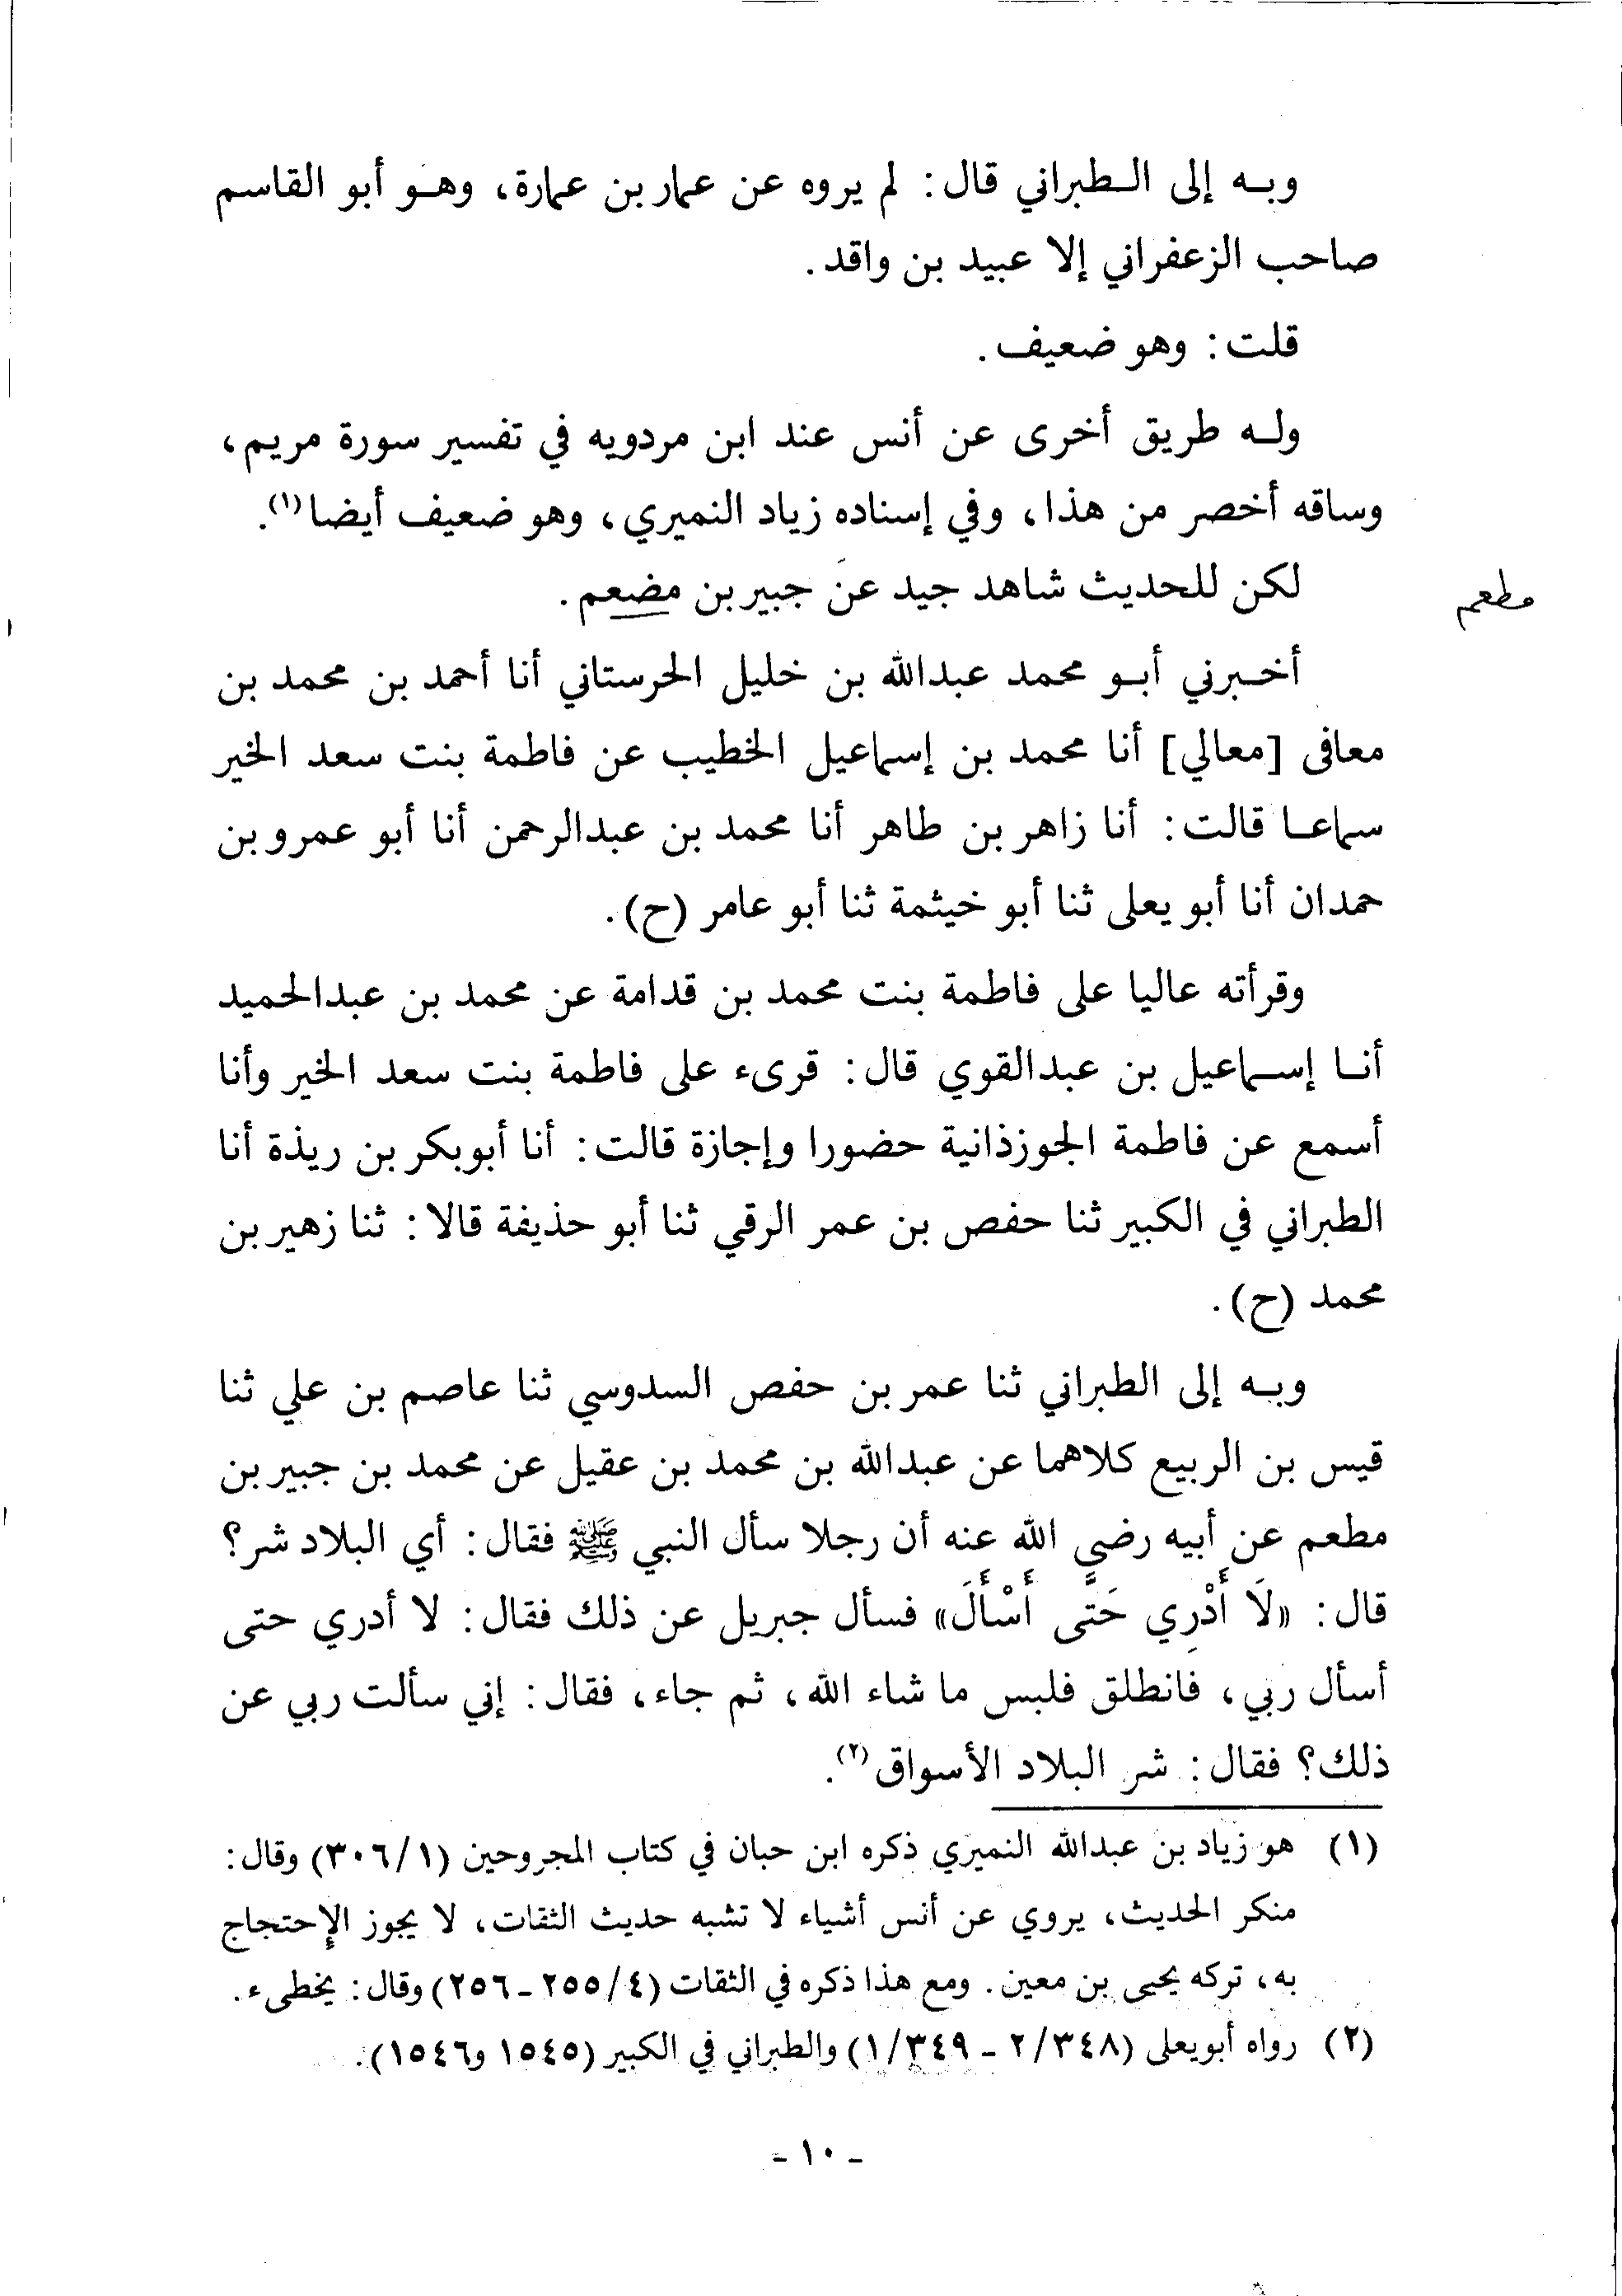 وبه إلى الطبراني قال: لم يروه عن عمار بن عمارة، وهو أبو القاسم
صاحب الزعفراني إلا عبيد بن واقد.
قلت: وهو ضعيف.
وله طريق أخرى عن أنس عند ابن مردويه في تفسير سورة مريم،
وساقه أخصر من هذا، وفي إسناده زياد النميري، وهو ضعيف أيضا(١).
لكن للحديث شاهد جيد عن جبير بن مضعم.
مطعم
أخبرني أبو محمد عبدالله بن خليل الحرستاني أنا أحمد بن محمد بن
معافى [معالي] أنا محمد بن إسماعيل الخطيب عن فاطمة بنت سعد الخير
سماعا قالت: أنا زاهر بن طاهر أنا محمد بن عبدالرحمن أنا أبو عمرو بن
حمدان أنا أبو يعلى ثنا أبو خيثمة ثنا أبو عامر (ح).
وقرأته عاليا على فاطمة بنت محمد بن قدامة عن محمد بن عبدالحميد
أنا إسماعيل بن عبدالقوي قال: قرىء على فاطمة بنت سعد الخير وأنا
أسمع عن فاطمة الجوزذانية حضورا وإجازة قالت: أنا أبوبكر بن ريذة أنا
الطبراني في الكبير ثنا حفص بن عمر الرقي ثنا أبو حذيفة قالا: ثنا زهير بن
محمد (ح).
وبه إلى الطبراني ثنا عمر بن حفص السدوسي ثنا عاصم بن علي ثنا
قيس بن الربيع كلاهما عن عبدالله بن محمد بن عقيل عن محمد بن جبير بن
مطعم عن أبيه رضي الله عنه أن رجلا سأل النبي ﷺ فقال: أي البلاد شر؟
قال: «لَا أَدْرِي حَتَّى أَسْأَلَ» فسأل جبريل عن ذلك فقال: لا أدري حتى
أسأل ربي، فانطلق فلبس ما شاء الله، ثم جاء، فقال: إني سألت ربي عن
ذلك؟ فقال: شر البلاد الأسواق(٢).
(١) هو زياد بن عبدالله النميري ذكره ابن حبان في كتاب المجروحين (٣٠٦/١) وقال:
منكر الحديث، يروي عن أنس أشياء لا تشبه حديث الثقات، لا يجوز الإحتجاج
به، تركه يحيى بن معين. ومع هذا ذكره في الثقات (٢٥٥/٤ ـ ٢٥٦) وقال: يخطىء.
(٢) رواه أبويعلى (٢/٣٤٨ ـ ١/٣٤٩) والطبراني في الكبير (١٥٤٥ و١٥٤٦).
ـ ١٠ ـ